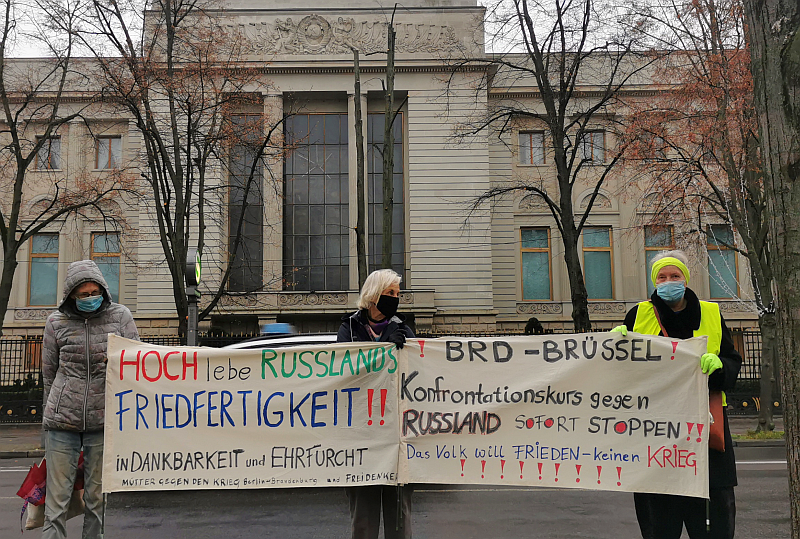 HOCH lebe RUSSLANDS
FRIEDFERTIGKEIT!!
in DANKBARKEIT und EHRFURCHT
MÜTTER GEGEN DEN KRIEG Berlin-Brandenburg und FREIDENKER
! BRD - BRÜSSEL!
Konfrontationskurs gegen
RUSSLAND SOFORT STOPPEN!!
Das Volk will FRIEDEN - keinen KRIEG
!!!!!!!!!!